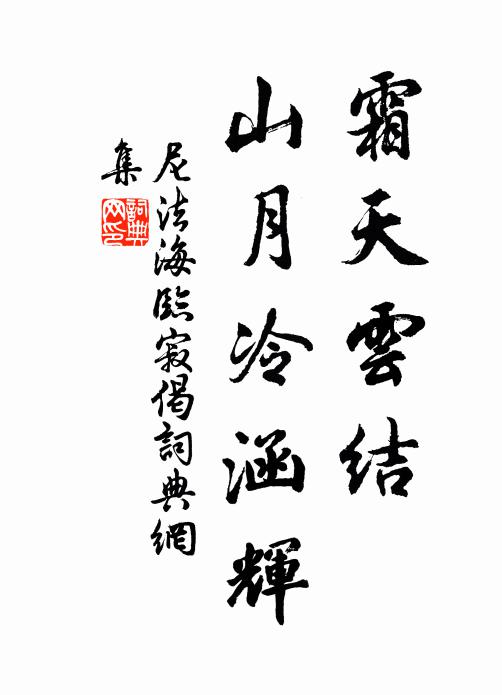 霜天雲結
山月冷涵輝
尼法海臨寂偈詞典網
集
詞典网印